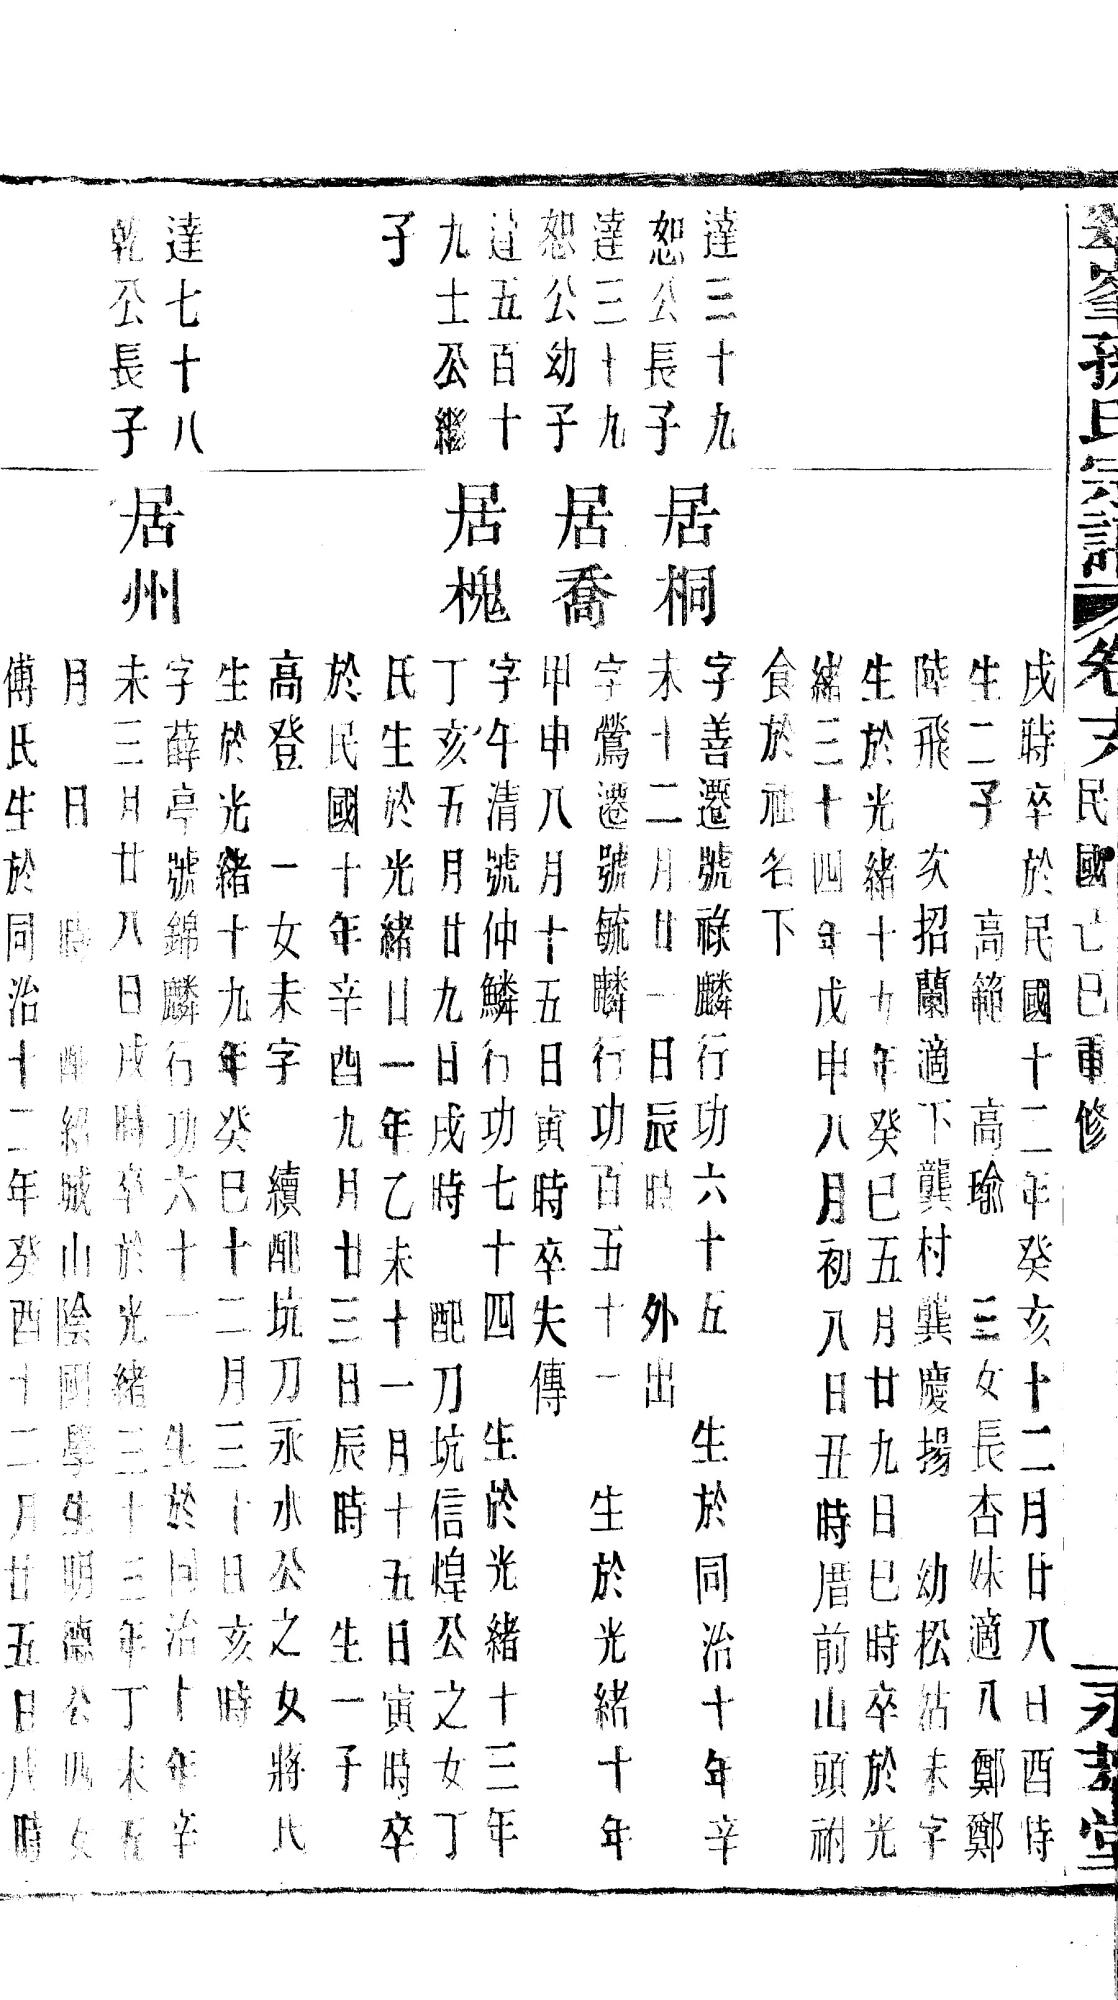 孫氏宗譜 卷六 民國己巳重修
戌時卒於民國十二年癸亥十二月廿八日酉時
生二子 高範 高瑜 三女長杏妹適八鄭鄭
陸飛 次招蘭適下龔村龔慶揚 幼松姑未字
生於光緒十九年癸巳五月廿九日巳時卒於光
緒三十四年戊申八月初八日丑時厝前山頭祔
食於祖名下
達三十九
恕公長子
居桐
字善遷號祿麟行功六十五 生於同治十年辛
未十二月廿一日辰時 外出
達三十九
恕公幼子
居喬
字鶯遷號毓麟行功百五十一 生於光緒十年
甲申八月十五日寅時卒失傳
達五百十
九士公繼
子
居槐
字午清號仲鱗行功七十四 生於光緒十三年
丁亥五月廿九日戌時 配刀坑信煌公之女丁
氏生於光緒廿一年乙未十一月十五日寅時卒
於民國十年辛酉九月廿三日辰時 生一子
高登 一女未字 續配坑刀永水公之女蔣氏
生於光緒十九年癸巳十二月三十日亥時
達七十八
乾公長子
居州
字薛亭號錦麟行功六十一 生於同治十年辛
未三月廿八日戌時卒於光緒三十三年丁未五
月 日 時 配紹城山陰國學生明德公四女
傅氏生於同治十二年癸酉十二月廿五日戌時